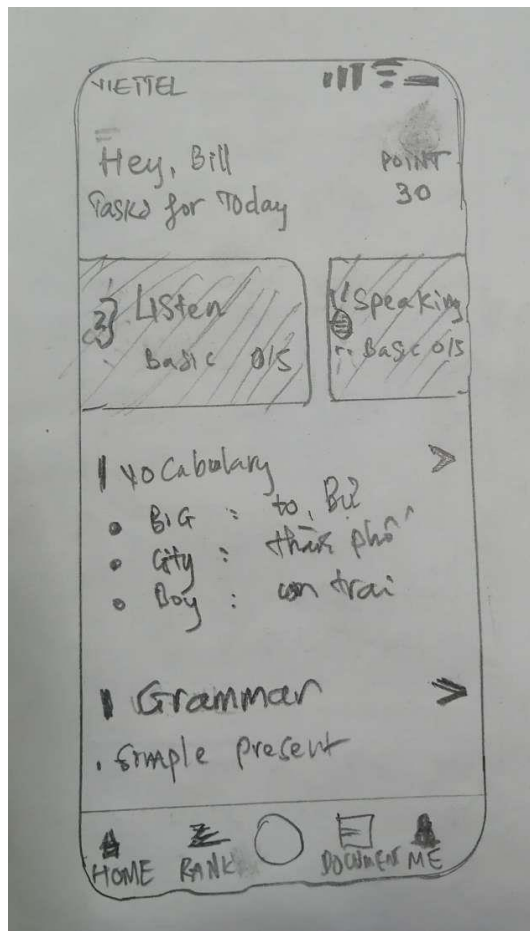 VIETTEL
Hey, Bill
POINT
Tasks for Today
30
Listen
Basic 0/5
Speaking
Basic 0/5
Vocabulary
BiG : to, Bự
City : thành phố
Boy : con trai
Grammar
Simple present
HOME RANK DOCUMENT ME